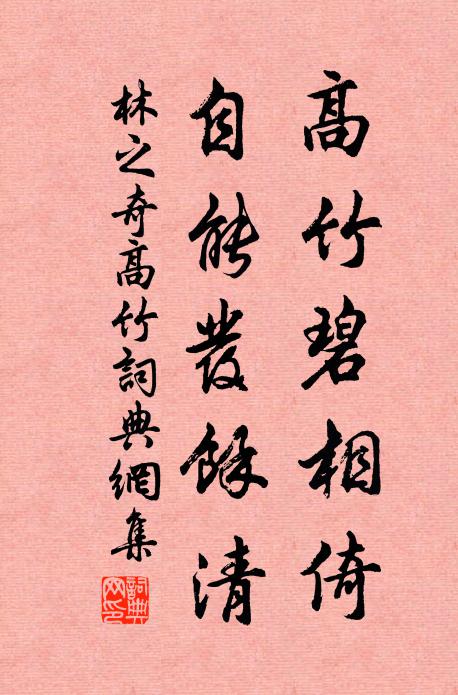 高竹碧相倚
自能發餘清
林之奇高竹詞典網集
詞典網印